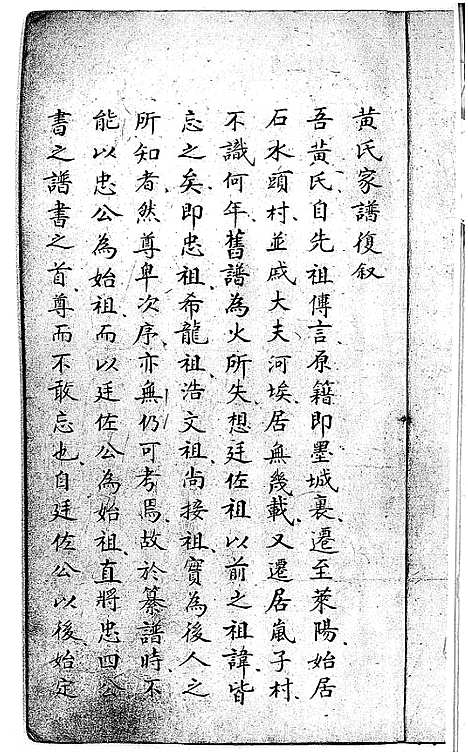 黃氏家譜復叙
吾黃氏自先祖傳言原籍即墨城裏、遷至萊陽、始居
石水頭村、並戚大夫河埃、居無幾載、又遷居嵐子村、
不識何年、舊譜為火所失、想廷佐祖以前之祖諱、皆
忘之矣、即忠祖、希龍祖、浩文祖、尚接祖、寶為後人之
所知者、然尊卑次序、亦無仍可考焉、故於纂譜時、不
能以忠公為始祖、而以廷佐公為始祖、直將忠四公
書之譜書之首、尊而不敢忘也、自廷佐公以後、始定